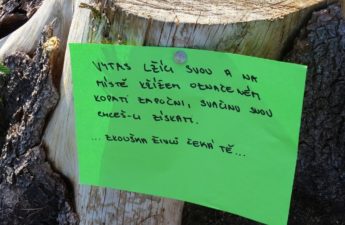 VYTAS LŽÍCI SVOU A NA
MÍSTĚ KŘÍŽEM OZNAČENÉM
KOPATI ZAPOČNI, SVAČINU SVOU
CHCEŠ-LI ZÍSKATI.
...ZKOUŠKA ŽIVLŮ ČEKÁ TĚ...